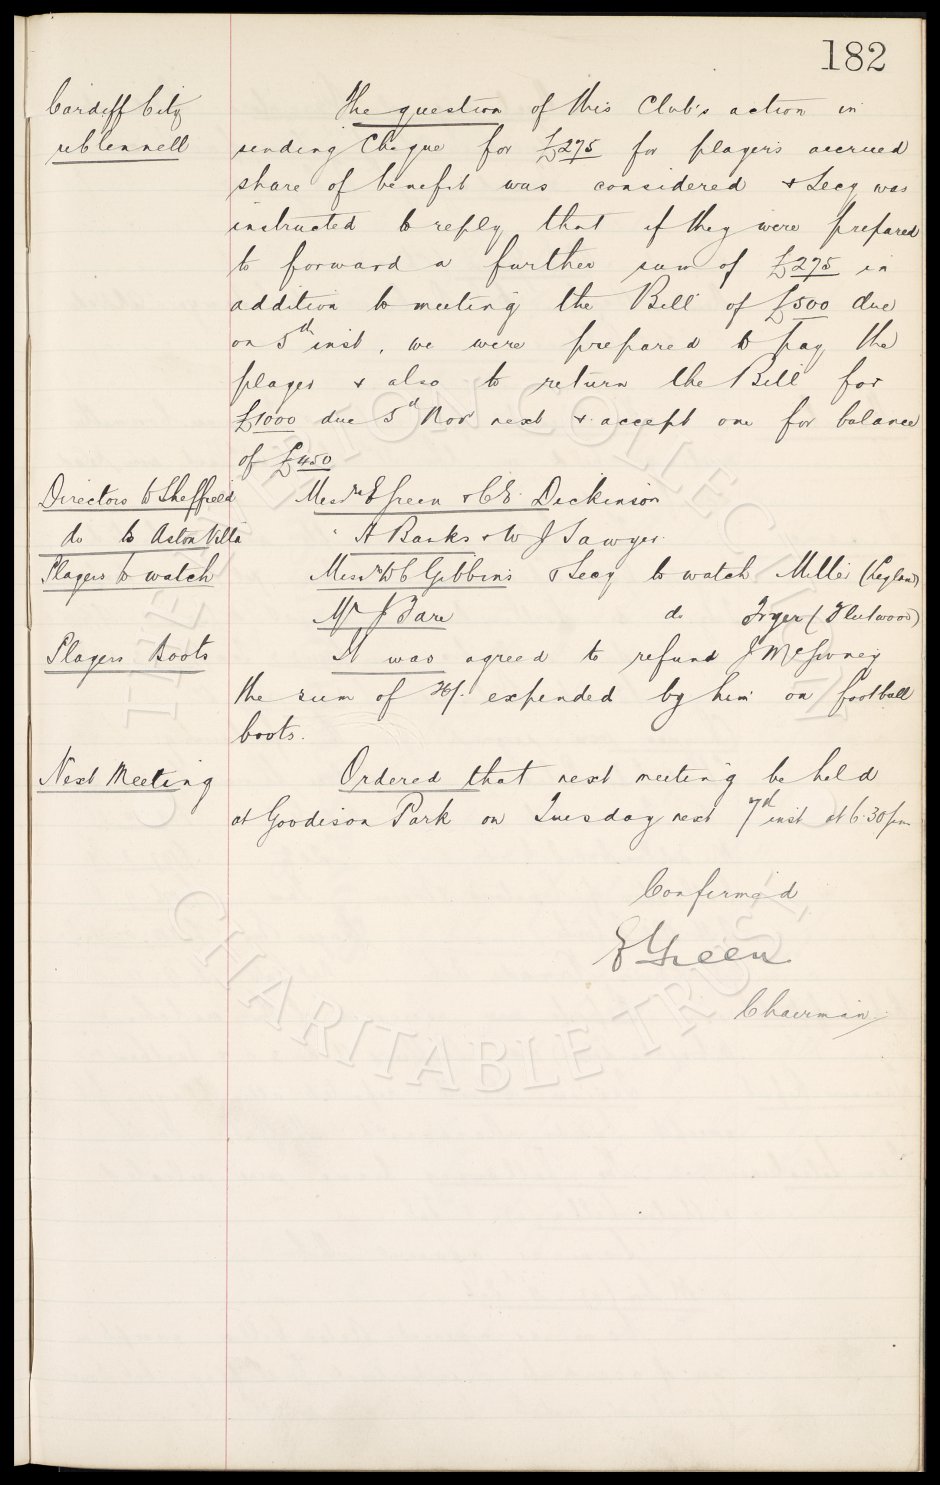 182
Cardiff City
re Clennell
The question of this Club's action in
sending Cheque for £275 for player's accrued
share of benefit was considered & Secy was
instructed to reply that if they were prepared
to forward a further sum of £275 in
addition to meeting the Bill of £500 due
on 5th inst, we were prepared to pay the
player & also to return the Bill for
£1000 due 5th Nov next & accept one for balance
of £450
Directors to Sheffield Messrs E Green & C E Dickinson
do to Aston Villa " A Banks & W J Sawyer
Players to watch Messrs W C Gibbins & Secy to watch Mille (Leyland)
Mr J Fare do Fryer (Fleetwood)
Players Boots It was agreed to refund J McGivney
the sum of 26/- expended by him on football
boots.
Next Meeting Ordered that next meeting be held
at Goodison Park on Tuesday next 7th inst at 6.30 pm
Confirmed
E Green
Chairman
THE EVERTON COLLECTION
CHARITABLE TRUST